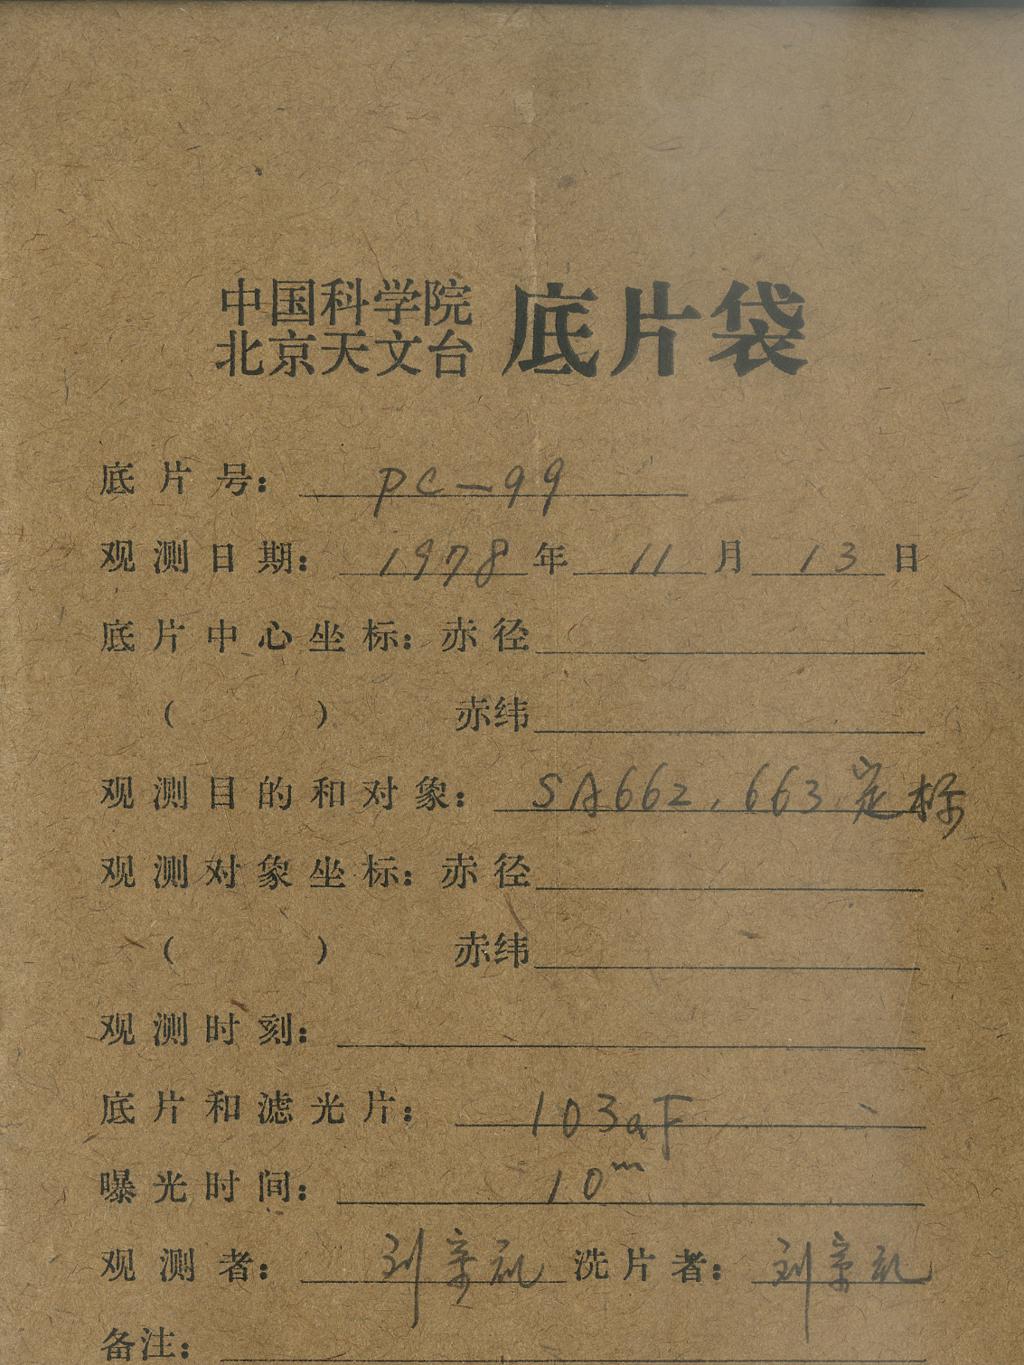 中国科学院
北京天文台 底片袋
底片号: PC-99
观测日期: 1978年 11月 13日
底片中心坐标: 赤径
( ) 赤纬
观测目的和对象: SA662, 663 定标
观测对象坐标: 赤径
( ) 赤纬
观测时刻:
底片和滤光片: 103aF
曝光时间: 10m
观测者: 刘 洗片者: 刘
备注: